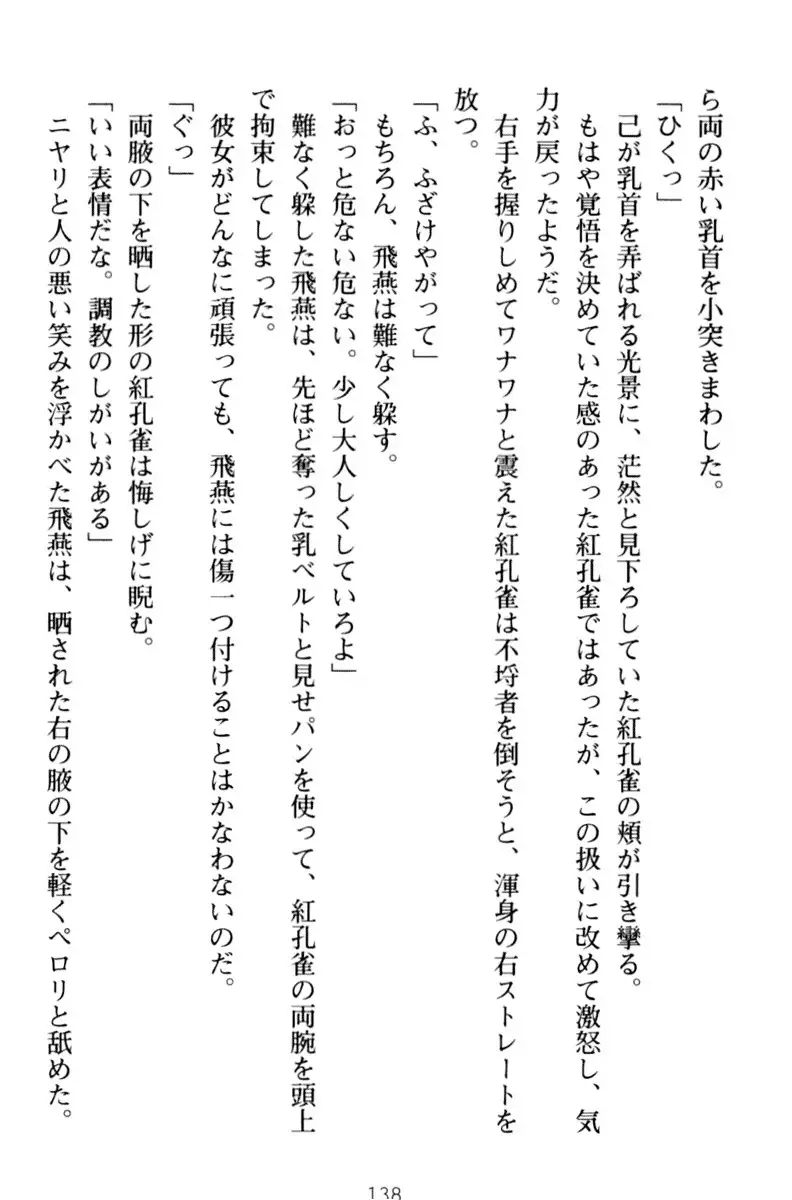 ら両の赤い乳首を小突きまわした。
「ひくっ」
己が乳首を弄ばれる光景に、茫然と見下ろしていた紅孔雀の頬が引き攣る。
もはや覚悟を決めていた感のあった紅孔雀ではあったが、この扱いに改めて激怒し、気
力が戻ったようだ。
右手を握りしめてワナワナと震えた紅孔雀は不埒者を倒そうと、渾身の右ストレートを
放つ。
「ふ、ふざけやがって」
もちろん、飛燕は難なく躱す。
「おっと危ない危ない。少し大人しくしていろよ」
難なく躱した飛燕は、先ほど奪った乳ベルトと見せパンを使って、紅孔雀の両腕を頭上
で拘束してしまった。
彼女がどんなに頑張っても、飛燕には傷一つ付けることはかなわないのだ。
「ぐっ」
両腋の下を晒した形の紅孔雀は悔しげに睨む。
「いい表情だな。調教のしがいがある」
ニヤリと人の悪い笑みを浮かべた飛燕は、晒された右の腋の下を軽くペロリと舐めた。
138